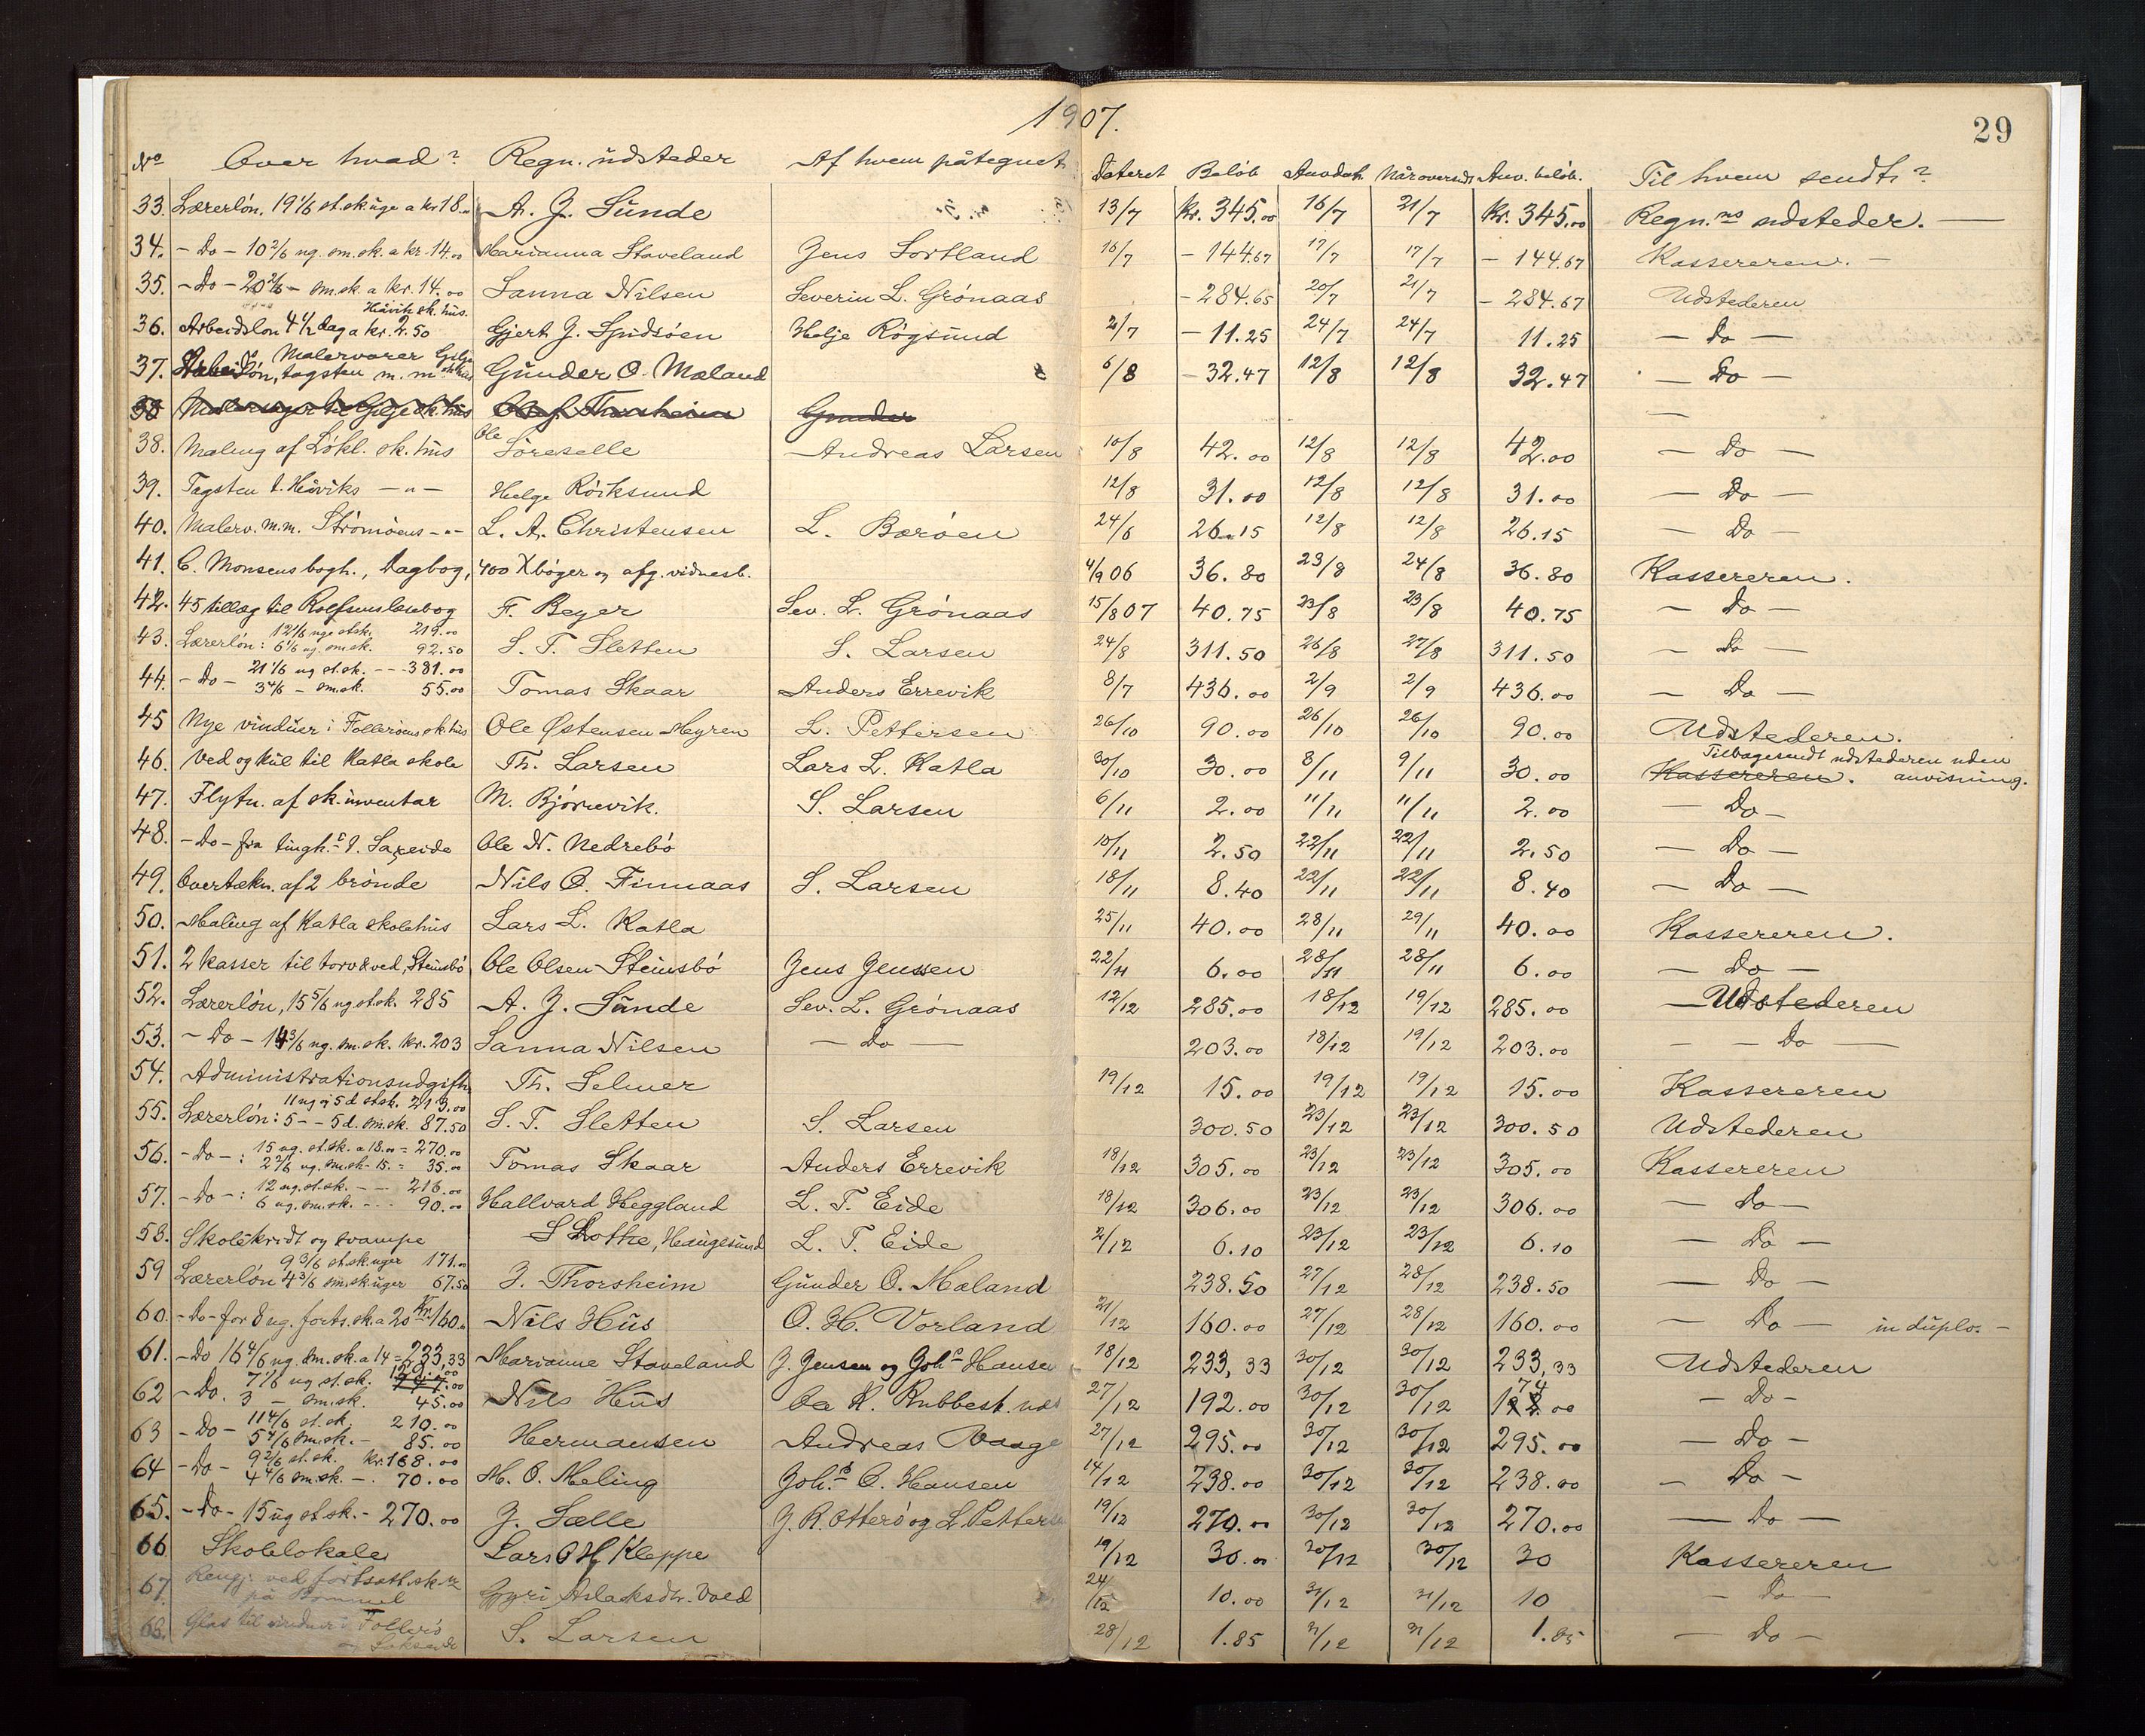 1907.
29
No Over hvad? Regn. udsteder Af hvem påtegnet Dateret Beløb Anvdat. Når oversendt Anv. beløb. Til hvem sendt?
33. Lærerløn. 19 1/6 st.sk.uge a kr 18.00 A. J. Sunde 13/7 kr. 345.00 16/7 21/7 kr. 345.00 Regn.ns udsteder. —
34. - Do - 10 2/6 ug. om.sk. a kr. 14.00 Marianna Staveland Jens Sortland 16/7 - 144.67 17/7 17/7 - 144.67 Kassereren. —
35. - Do - 20 2/6 - om.sk. a kr. 14.00 Sanna Nilsen Severin L. Grønaas - 284.65 20/7 21/7 - 284.67 Udstederen
Håvik sk. hus.
36. Arbeidsløn 4 1/2 dag a kr. 2.50 Gjert J. Spidsøen Helje Røgsund 2/7 - 11.25 24/7 24/7 11.25 — Do —
Malervarer Gilje
37. tagsten m. m. Gunder O. Mæland 6/8 - 32.47 12/8 12/8 32.47 — Do —
38 Malervarer til Gilje sk. hus Thorsheim Gunder —
38. Maling af Løkl. sk. hus Ole Søreselle Andreas Larsen 10/8 42.00 12/8 12/8 42.00 — Do —
39. Tagsten t. Håviks — " — Helge Röiksund 12/8 31.00 12/8 12/8 31.00 — Do —
40. Malerv. m.m. Strømøens - " - L. A. Christensen L. Børøen 24/6 26.15 12/8 12/8 26.15 — Do —
41. C. Monsens bogh., Dagbog, 400 X bøger og afg. vidnesb. 4/9 06 36.80 23/8 24/8 36.80 Kassereren.
42. 45 tillæg til Rolfsens læsebog F. Beyer Sev. L. Grønaas 15/8 07 40.75 23/8 23/8 40.75 — Do —
12 1/6 uge st.sk. 219.00
43. Lærerløn: 6 1/6 ug. om.sk. 92.50 S. T. Sletten S. Larsen 24/8 311.50 26/8 27/8 311.50 — Do —
21 1/6 ug st.sk. - - - 381.00
44. - Do - 3 4/6 - om.sk. 55.00 Tomas Skaar Anders Errevik 8/7 436.00 2/9 2/9 436.00 — Do —
45 Nye vinduer i Follerøens sk. hus Ole Østensen Myren L. Pettersen 26/10 90.00 26/10 26/10 90.00 Udstederen.
Tilbagesendt udstederen uden
46. Ved og kul til Katla skole Th. Larsen Lars L. Katla 30/10 30.00 8/11 9/11 30.00 Kassereren. anvisning.
47. Flytn. af sk. inventar M. Bjørnevik. S. Larsen 6/11 2.00 11/11 11/11 2.00 — Do —
48. - Do - fra tingh. t. Saxeide Ole N. Nedrebø 10/11 2.50 22/11 22/11 2.50 — Do —
49. Overtækn. af 2 brønde Nils O. Finnaas S. Larsen 18/11 8.40 22/11 22/11 8.40 — Do —
50. Maling af Katla skolehus Lars L. Katla 25/11 40.00 28/11 29/11 40.00 Kassereren.
51. 2 kasser til torv & ved, Steinsbø Ole Olsen Steinsbø Jens Jenssen 22/11 6.00 28/11 28/11 6.00 — Do —
52. Lærerløn, 15 5/6 ug st.sk. 285 A. J. Sunde Sev. L. Grønaas 12/12 285.00 18/12 19/12 285.00 — Udstederen
53. - Do - 14 3/6 ug. om.sk. kr. 203 Sanna Nilsen — Do — 203.00 18/12 19/12 203.00 — — Do —
54. Administrationsudgifter Th. Selmer 19/12 15.00 19/12 19/12 15.00 Kassereren
11 ug og 5 d st.sk. 213.00
55. Lærerløn: 5 - - 5 d. om.sk. 87.50 S. T. Sletten S. Larsen 300.50 23/12 23/12 300.50 Udstederen
15 ug. st.sk. a 18.00 = 270.00
56. - Do - : 2 2/6 ug. om.sk - 15. = 35.00 Tomas Skaar Anders Errevik 18/12 305.00 23/12 23/12 305.00 Kassereren
12 ug. st.sk. - - 216.00
57. - Do - : 6 ug. om.sk. - - - 90.00 Hallvard Heggland L. T. Eide 18/12 306.00 23/12 23/12 306.00 — Do —
58. Skolekridt og svampe S Rothe, Haugesund L. T. Eide 2/12 6.10 23/12 23/12 6.10 — Do —
9 3/6 st.sk.uger 171.00
59 Lærerløn 4 3/6 om.sk.uger 67.50 J. Thorsheim Gunder O. Mæland 238.50 27/12 28/12 238.50 — Do —
60. - Do - for 8 ug. forts. sk. a 20 Kr. 160.00 Nils Hus O. H. Vorland 21/12 160.00 27/12 28/12 160.00 — Do — in duplo. —
61. - Do 16 4/6 ug. om.sk. a 14 = 233,33 Marianne Staveland J. Jensen og Joh.s Hansen 18/12 233,33 30/12 30/12 233,33 Udstederen
7 1/6 ug st.sk. 147.00
62 - Do. 3 — om.sk. 45.00 Nils Hus Oa K. Rubbest. 27/12 192.00 30/12 30/12 174.00 — Do —
11 4/6 st.sk. 210.00
63 - Do - 5 4/6 om.sk. - 85.00 Hermansen Andreas Waage 27/12 295.00 30/12 30/12 295.00 — Do —
9 2/6 st.sk. kr. 168.00
64 - Do - 4 4/6 om.sk. - . 70.00 M. O. Meling Joh.s O. Hansen 14/12 238.00 30/12 30/12 238.00 — Do —
65. - Do - 15 ug st.sk. - 270.00 J. Sælle J. R. Otterø og L. Pettersen 19/12 270.00 30/12 30/12 270.00 — Do —
66 Skolelokale Lars O H Kleppe 19/12 30.00 30/12 30/12 30 Kassereren
67 Rengj. ved fortsatt. sk.
på Bømmel Gyri Aslaksdtr. Vold 24/12 10.00 31/12 31/12 10 — Do —
68. Glas til vinduer i Follerø
og Sakseide S. Larsen 28/12 1.85 31/12 31/12 1.85 — Do —